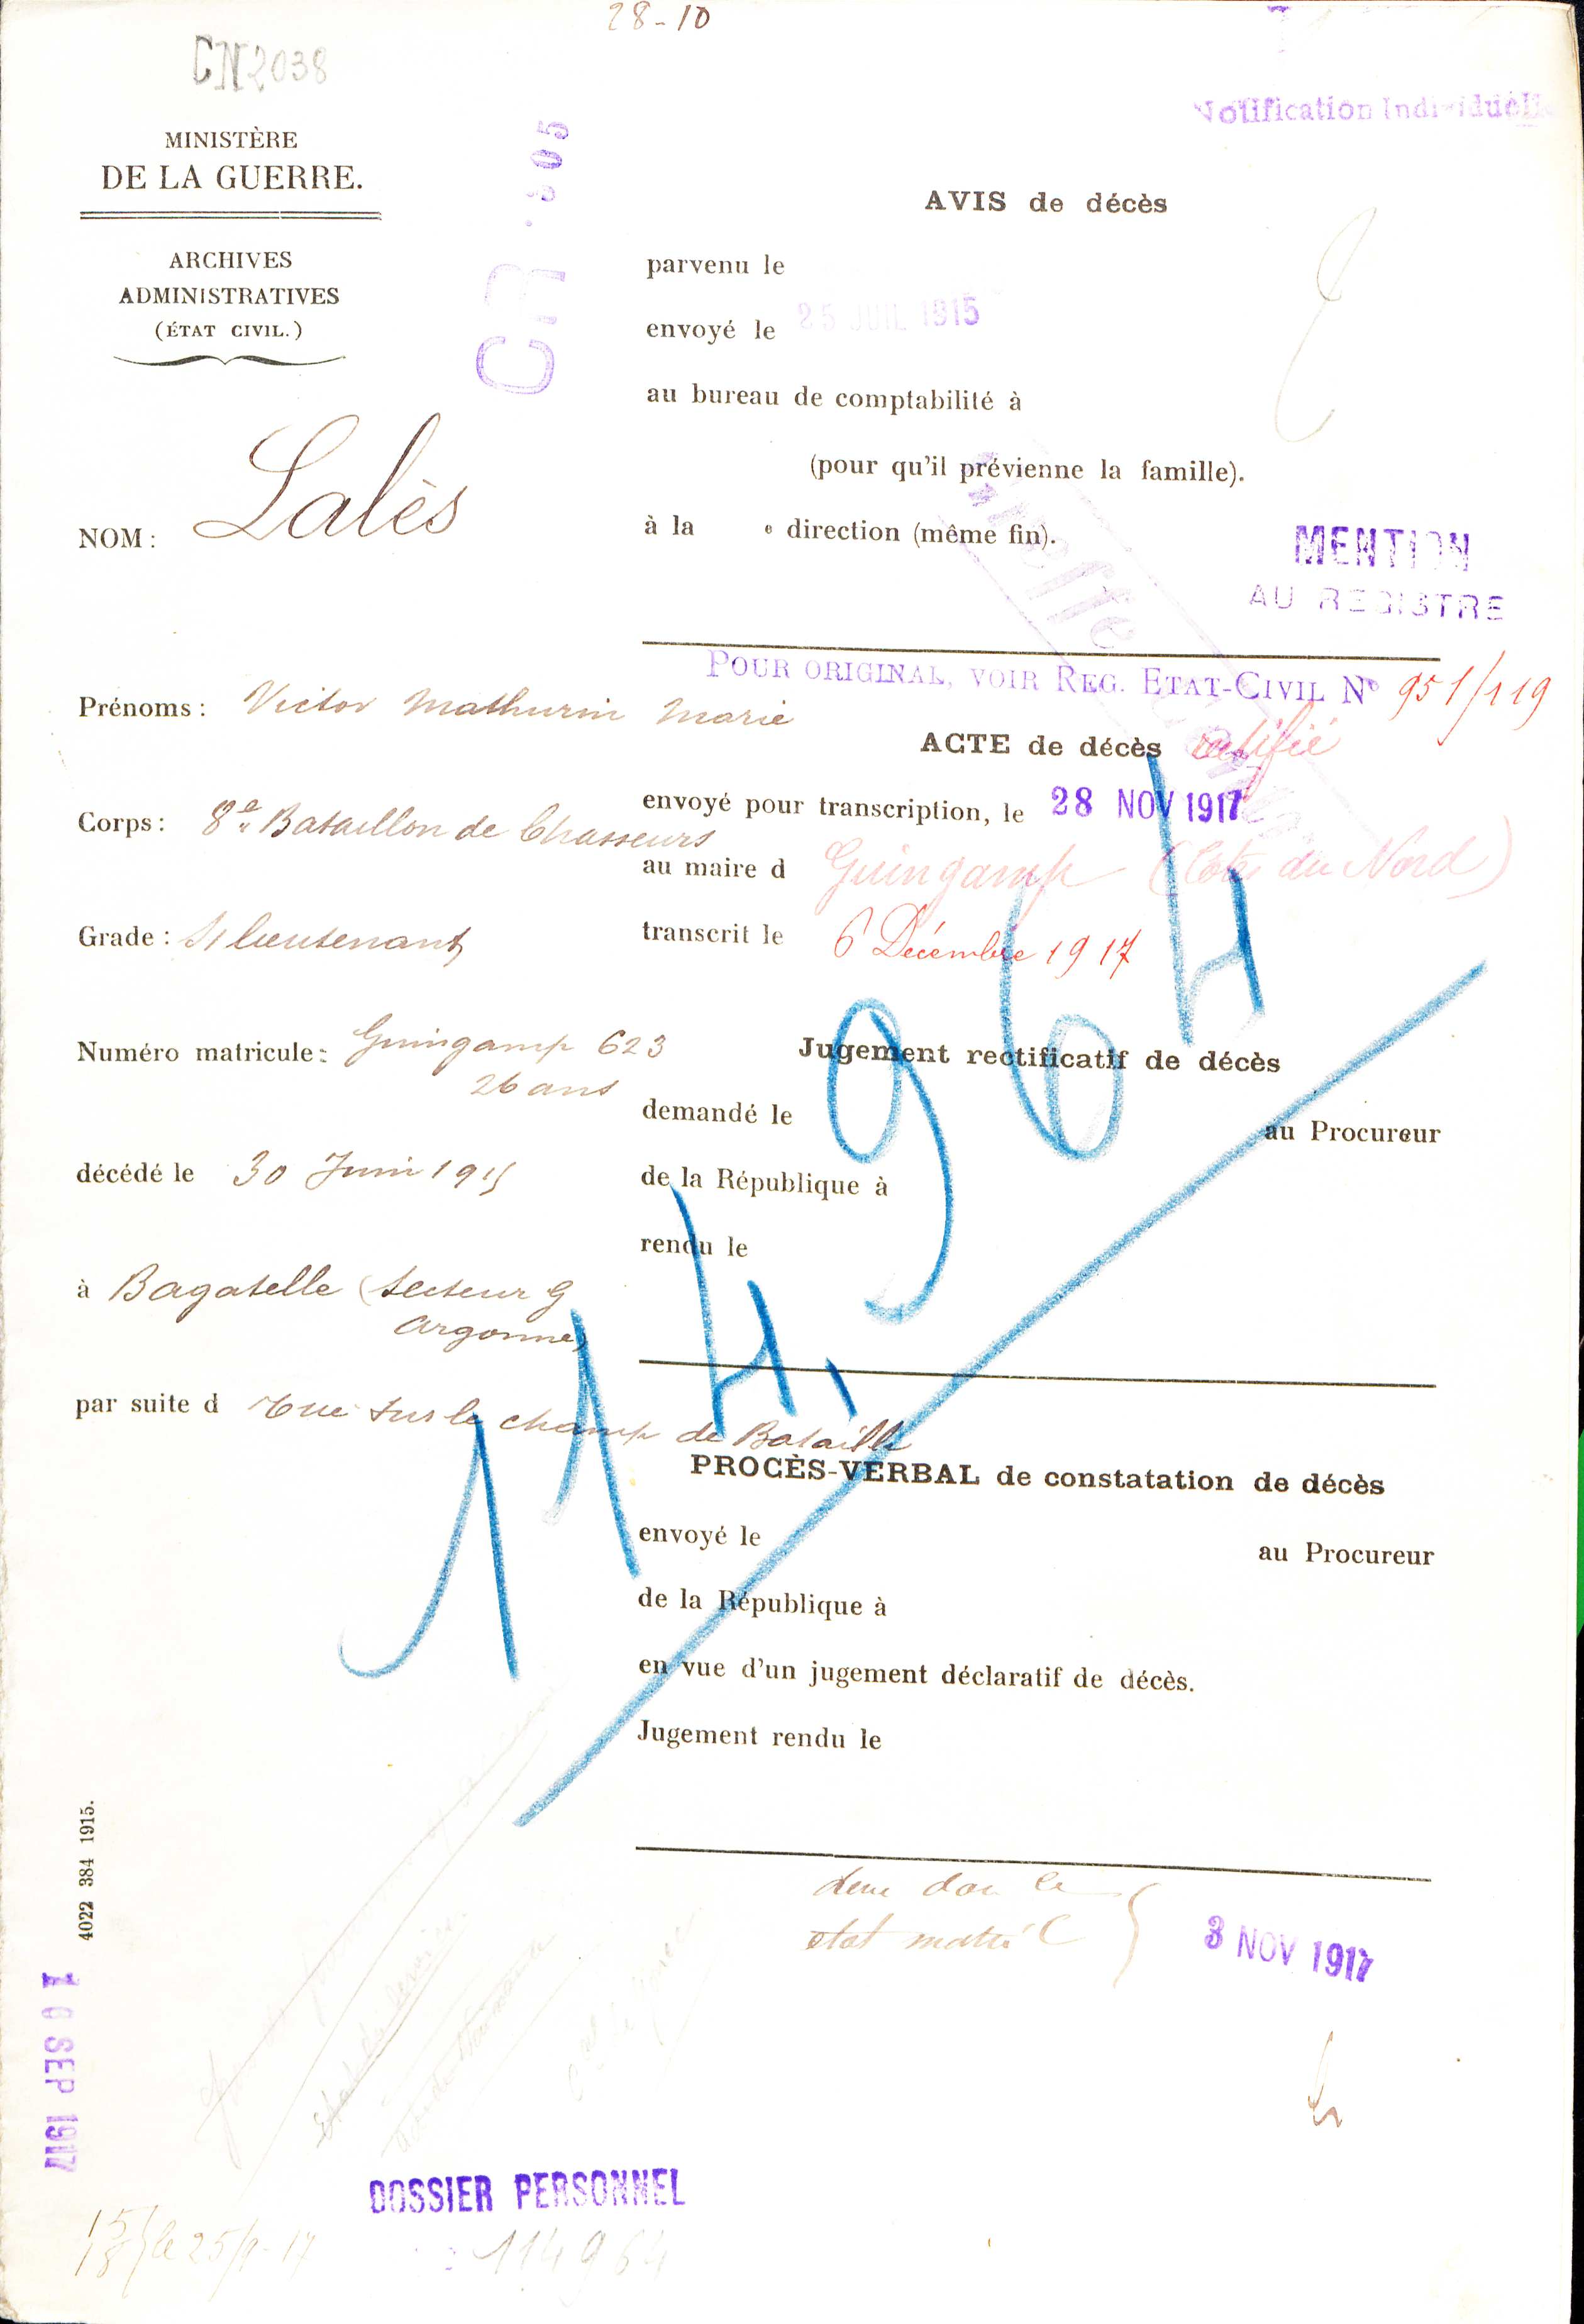 28-10
CN2038
MINISTÈRE
DE LA GUERRE.
ARCHIVES
ADMINISTRATIVES
(ÉTAT CIVIL.)
CR
Notification Individuelle
AVIS de décès
parvenu le
envoyé le 25 JUIL 1915
au bureau de comptabilité à
(pour qu'il prévienne la famille).
à la e direction (même fin).
MENTION
AU REGISTRE
NOM: Lalès
Prénoms: Victor Mathurin Marie
Corps: 8e Bataillon de Chasseurs
Grade: S/lieutenant
Numéro matricule: Guingamp 623
26 ans
décédé le 30 Juin 1915
à Bagatelle (Secteur G
Argonne)
par suite d Tué sur le champ de Bataille
POUR ORIGINAL, VOIR REG. ETAT-CIVIL No 951/119
ACTE de décès ratifié
envoyé pour transcription, le 28 NOV 1917
au maire d Guingamp (Côtes du Nord)
transcrit le 6 Décembre 1917
Jugement rectificatif de décès
demandé le au Procureur
de la République à
rendu le
114,964
PROCÈS-VERBAL de constatation de décès
envoyé le au Procureur
de la République à
en vue d'un jugement déclaratif de décès.
Jugement rendu le
etat
3 NOV 1917
4022 384 1915.
SEP 1917
DOSSIER PERSONNEL
114964
15/18 le 25/9-17